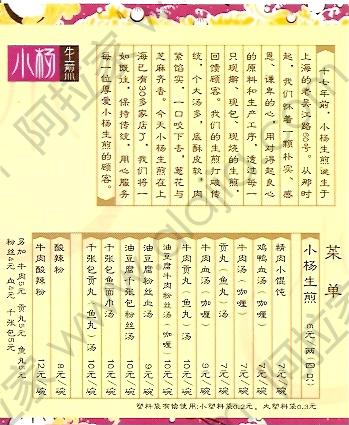 小杨生煎
十七年前，小杨生煎诞生于
上海的老吴江路60号。从那时
起，我们怀着一颗朴实、感
恩、谦卑的心，用对得起良心
的原料和生产工序，透过每一
只现擀、现包、现烧的生煎，
回馈顾客。我们的生煎打破传
统，个大汤多，底酥皮软，肉
紧馅实，一口咬下去，葱花与
芝麻齐香。今天小杨生煎在上
海已有30多家店了，我们将一
如既往，保持传统，用心服务
每一位厚爱小杨生煎的顾客。
菜单
小杨生煎 6元/两（四只）
精肉小馄饨 7元/碗
鸡鸭血汤（加 咖喱） 7元/碗
牛肉汤（咖喱） 9元/碗
牛肉血汤（咖喱） 10元/碗
贡丸（鱼丸）汤 9元/碗
牛肉贡丸（鱼丸）汤 10元/碗
油豆腐牛肉粉丝汤（咖喱） 10元/碗
油豆腐粉丝血汤 9元/碗
油豆腐小千张包汤 10元/碗
千张包鱼面巾汤 10元/碗
千张包贡丸（鱼丸）汤 10元/碗
酸辣粉 8元/碗
牛肉酸辣粉 12元/碗
另加：牛肉5元 贡丸5元 鱼丸5元
粉丝4元 血4元 千张包5元
塑料袋有偿使用:小塑料袋0.2元，大塑料袋0.3元